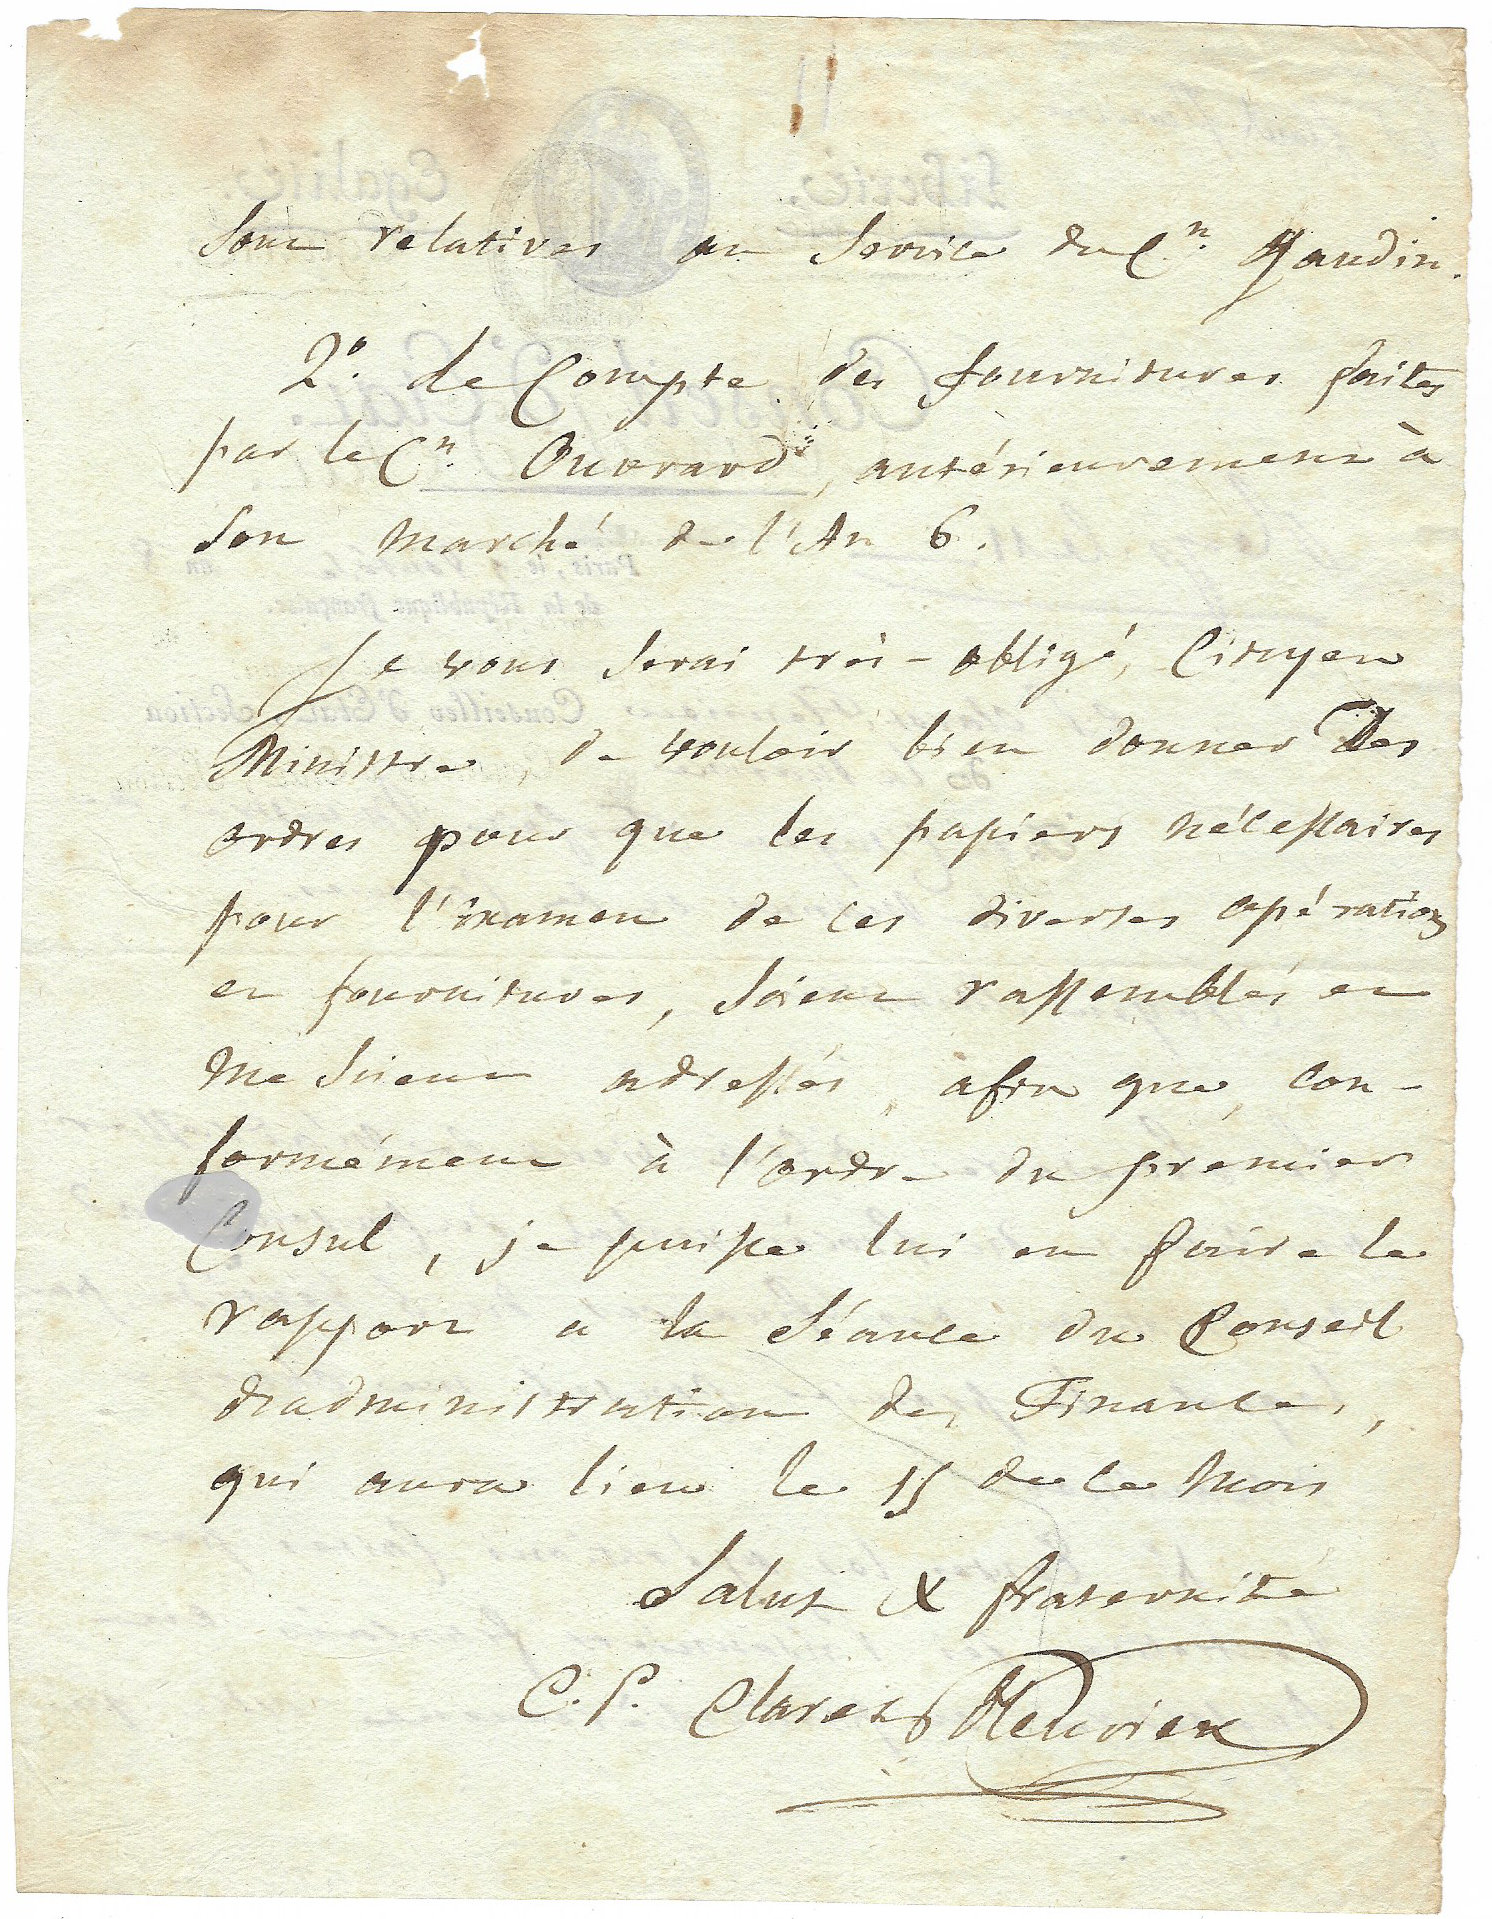 sont relatives au service du C.n Gaudin.
2.o le Compte des fournitures faites
par le C.n Ouvrard, antérieurement à
son marché de l'An 6.
Je vous serai très-obligé, Citoyen
Ministre, de vouloir bien donner des
ordres pour que les papiers nécessaires
pour l'examen de ces diverses opérations
et fournitures, soient rassemblés et
me soient adressés, afin que, con-
formément à l'ordre du premier
Consul, je puisse lui en faire le
rapport a la séance du Conseil
d'administration des Finances,
qui aura lieu le 15 de ce mois
Salut & fraternité
C. P. Claret Fleurieu